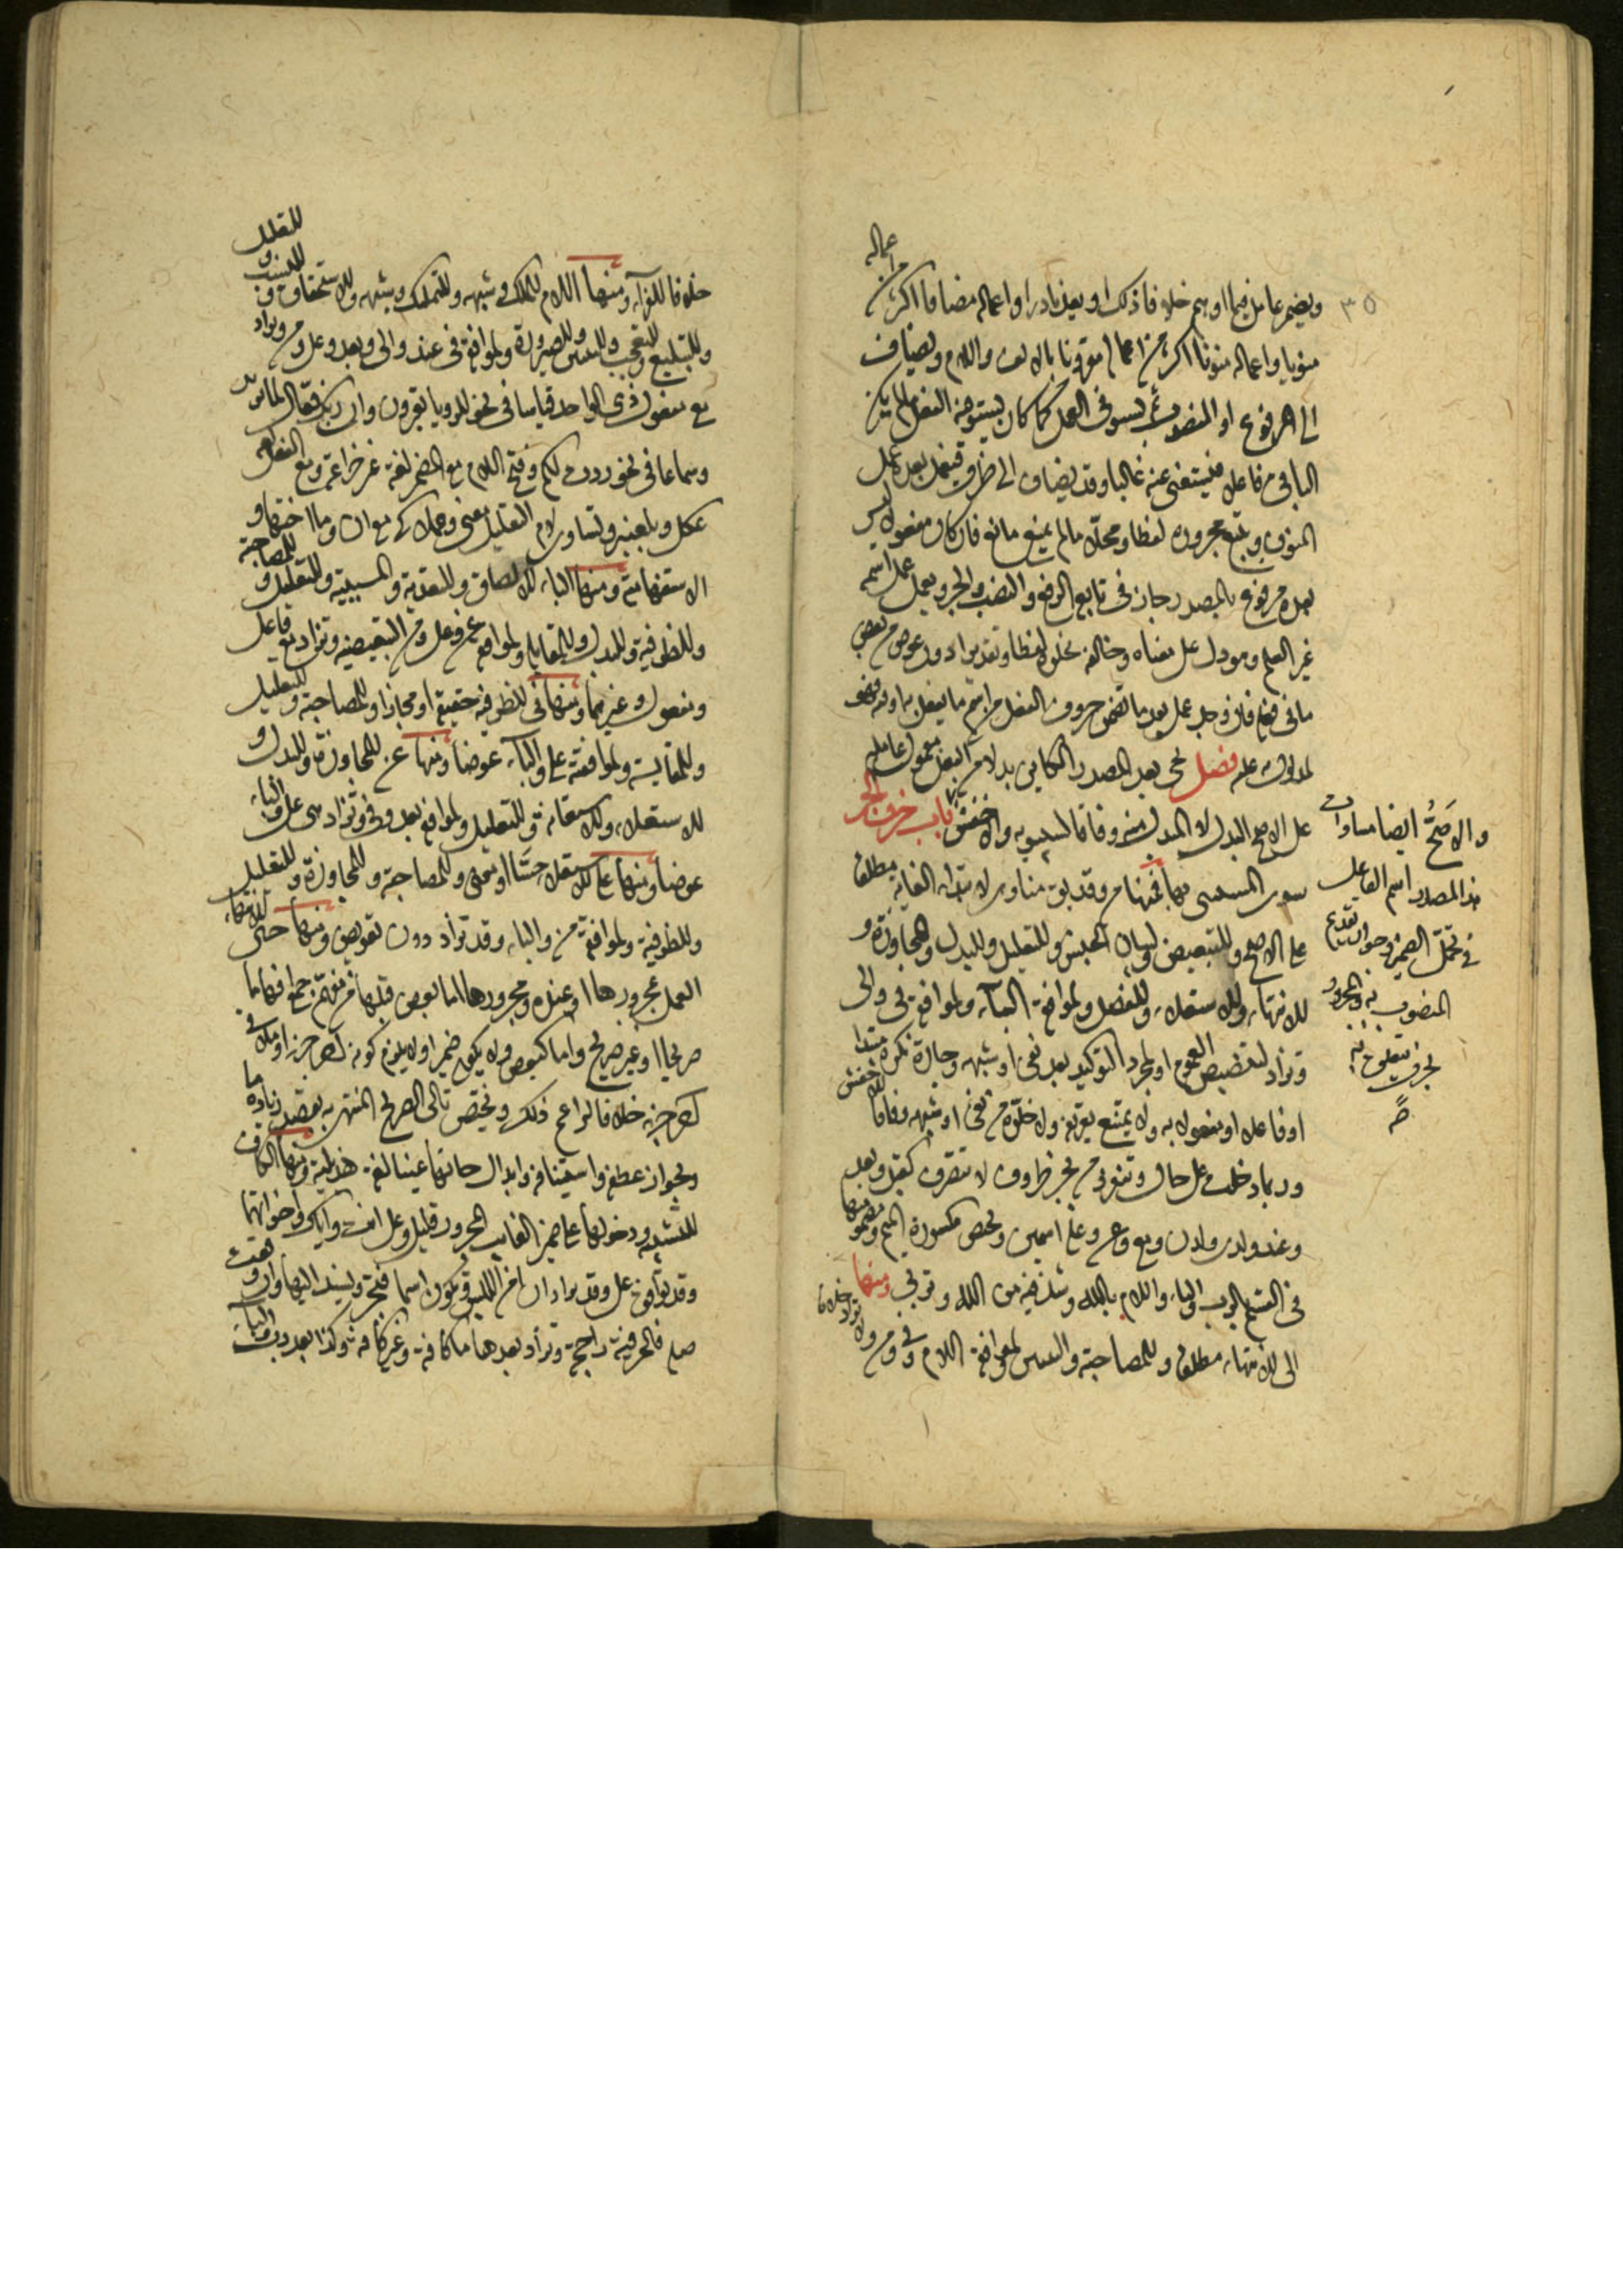 ٣٥
ويضمر عامل فيما اوهم خلاف ذلك او يعد نادرا واعماله مضافا اكثر من اعماله
منونا واعماله منونا اكثر من اعماله مقرونا بالالف واللام ويضاف
الى المرفوع او المنصوب ثم يستوفى العمل كما كان يستوفيه الفعل ما لم يكن
الباقى فاعلا فيستغنى عنه غالبا وقد يضاف الى ظرف فيعمل بعده عمل
المنون ويتبع مجروره لفظا ومحلا ما لم يمنع مانع فان كان مفعولا ليس
بعده مرفوع بالمصدر جاز فى تابعه الرفع والنصب والجر ويعمل عمله اسمه
غير العلم وهو ما دل على معناه وخالفه بخلوه لفظا وتقديرا دون عوض من بعض
ما فى فعله فان وجد عمل بعد ما تضمن حروف الفعل من اسم ما يفعل به او فيه فهو
لمدلول به عليه فصل يجى بعد المصدر الكاين بدلا من الفعل معمول عامله
على الاصح البدل لا المبدل منه وفاقا لسيبويه والاخفش باب حروف الجر
والاصح ايضا مساواة
هذا المصدر اسم الفاعل
فى تحمل الضمير وجواز تقديم
المنصوب به والمجرور
بحرف يتعلق به
صح
سوى المستثنى بها فمنها من وقد يقال منا وهى لابتداء الغاية مطلقا
على الاصح وللتبعيض ولبيان الجنس وللتعليل وللبدل وللمجاوزة و
للانتهاء وللاستعلاء وللفصل ولموافقة الباء ولموافقة فى والى
وتزاد لتنصيص العموم او لمجرد التوكيد بعد نفى او شبهه وجارة نكرة مبتدا
او فاعلا او مفعولا به ولا يمتنع تعريفه ولا خلوه من نفى او شبهه وفاقا للاخفش
وربما دخلت على حال وتنفرد من بجر ظروف لا تتصرف كقبل وبعد
وعند ولدى ولدن ومع وعن وعلى اسمين وتختص مكسورة الميم ومضمومتها
فى القسم بالرب والباء واللام بالله وشذ فيه من الله وتربى ومنها
الى للانتهاء مطلقا وللمصاحبة وللتبيين ولموافقة اللام وفى ومن ولا تزاد خلافا
خلافا للفراء ومنها اللام للملك وشبهه وللتمليك وشبهه وللاستحقاق وللنسب وللتعليل
وللتبليغ وللتعجب وللتبيين وللصيرورة ولموافقة فى وعند والى وبعد وعلى ومن وتزاد
مع مفعول ذى الواحد قياسا فى نحو للرويا تعبرون وان ربك فعال لما يريد
وسماعا فى نحو ردف لكم وفتح اللام مع المضمر لغة غير خزاعة ومع الفعل لغة
عكل وبلعنبر وتساوى لام التعليل معنى وعملا كى مع ان وما اختها و
الاستفهامية ومنها الباء للالصاق وللتعدية وللسببية وللتعليل وللمصاحبة
وللظرفية وللبدل وللمقابلة ولموافقة عن وعلى ومن التبعيضية وتزاد مع فاعل
ومفعول وغيرهما ومنها فى للظرفية حقيقة او مجازا وللمصاحبة وللتعليل
وللمقايسة ولموافقة على والباء عوضا ومنها عن للمجاوزة وللبدل و
للاستعلاء وللاستعانة وللتعليل ولموافقة بعد وفى وتزاد هى وعلى والباء
عوضا ومنها على للاستعلاء حسا او معنى وللمصاحبة وللمجاوزة وللتعليل
وللظرفية ولموافقة من والباء وقد تزاد دون تعويض ومنها حتى لانتهاء
العمل بمجرورها او عنده ومجرورها اما بعض قبلها من مفهم جمع افهاما
صريحا او غير صريح واما كبعض ولا يكون ضميرا ولا يلزم كونه اخر جزء او ملاقى
اخر جزء خلافا لزاعم ذلك ويختص تالى الصريح المنتهى به بقصد زيادة ما
وبجواز عطفه واستينافه وابدال حائها عينا لغة هذلية ومنها الكاف
للتشبيه ودخولها على ضمير الغايب المجرور قليل وعلى انت واياك واخواتهما
وقد توافق على وقد تزاد ان امن اللبس وتكون اسما فتجر ويسند اليها وان وقعت
صلة فالحرفية راجحة وتزاد بعدها ما كافة وغير كافة وكذا بعد رب والباء